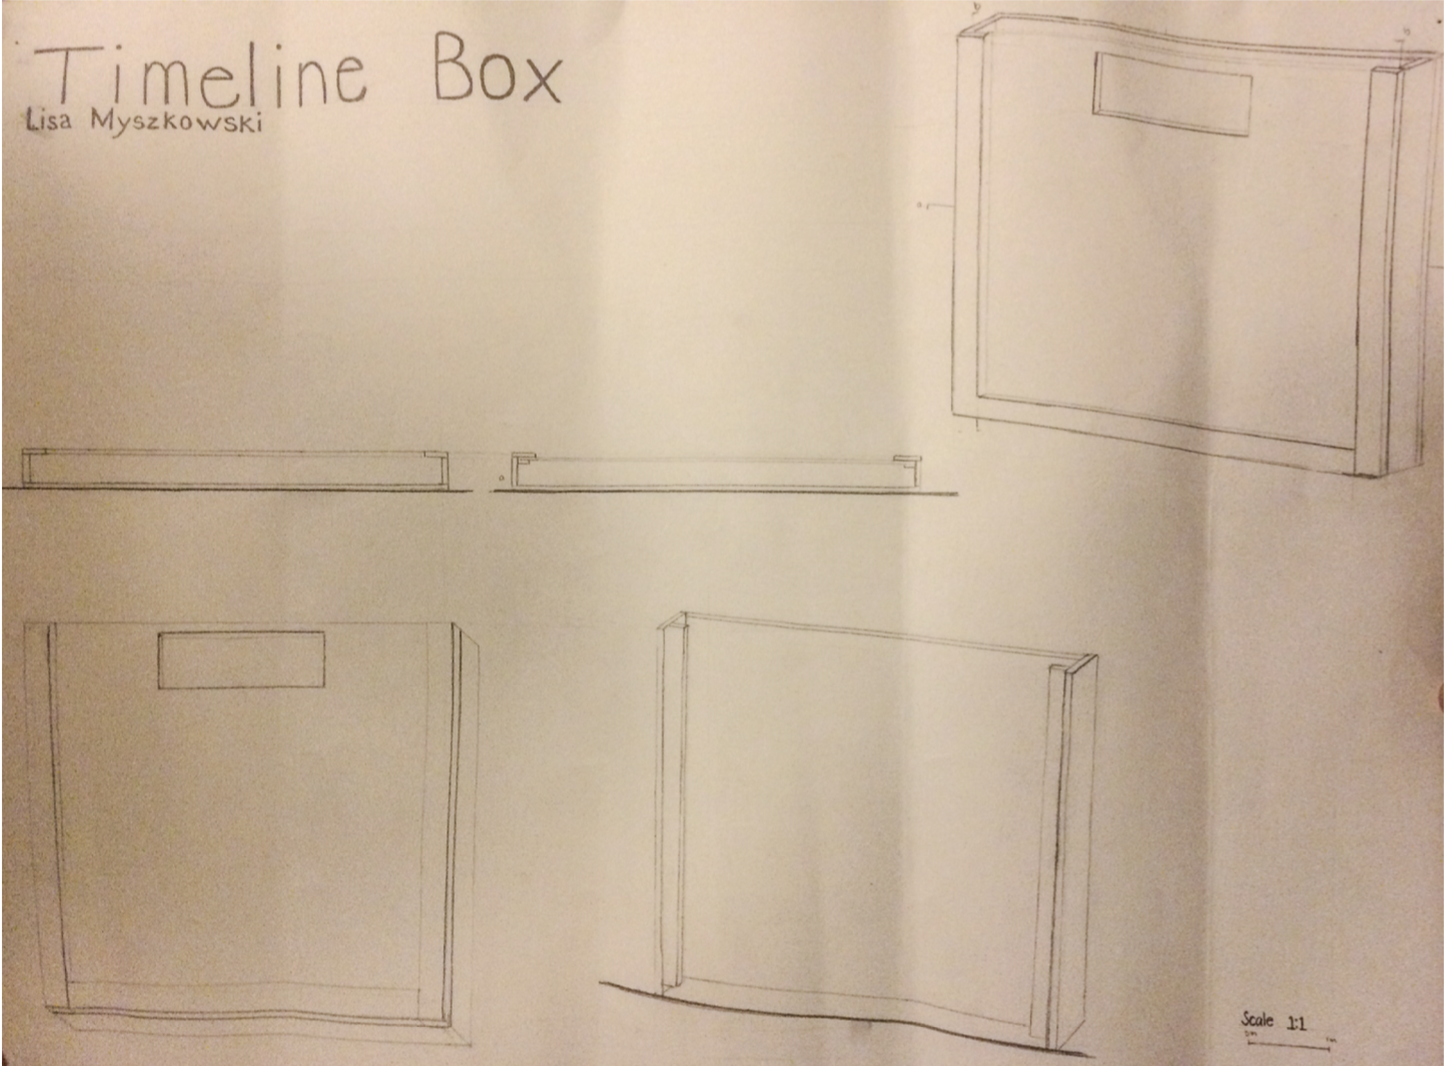 Timeline Box
Lisa Myszkowski
Scale 1:1